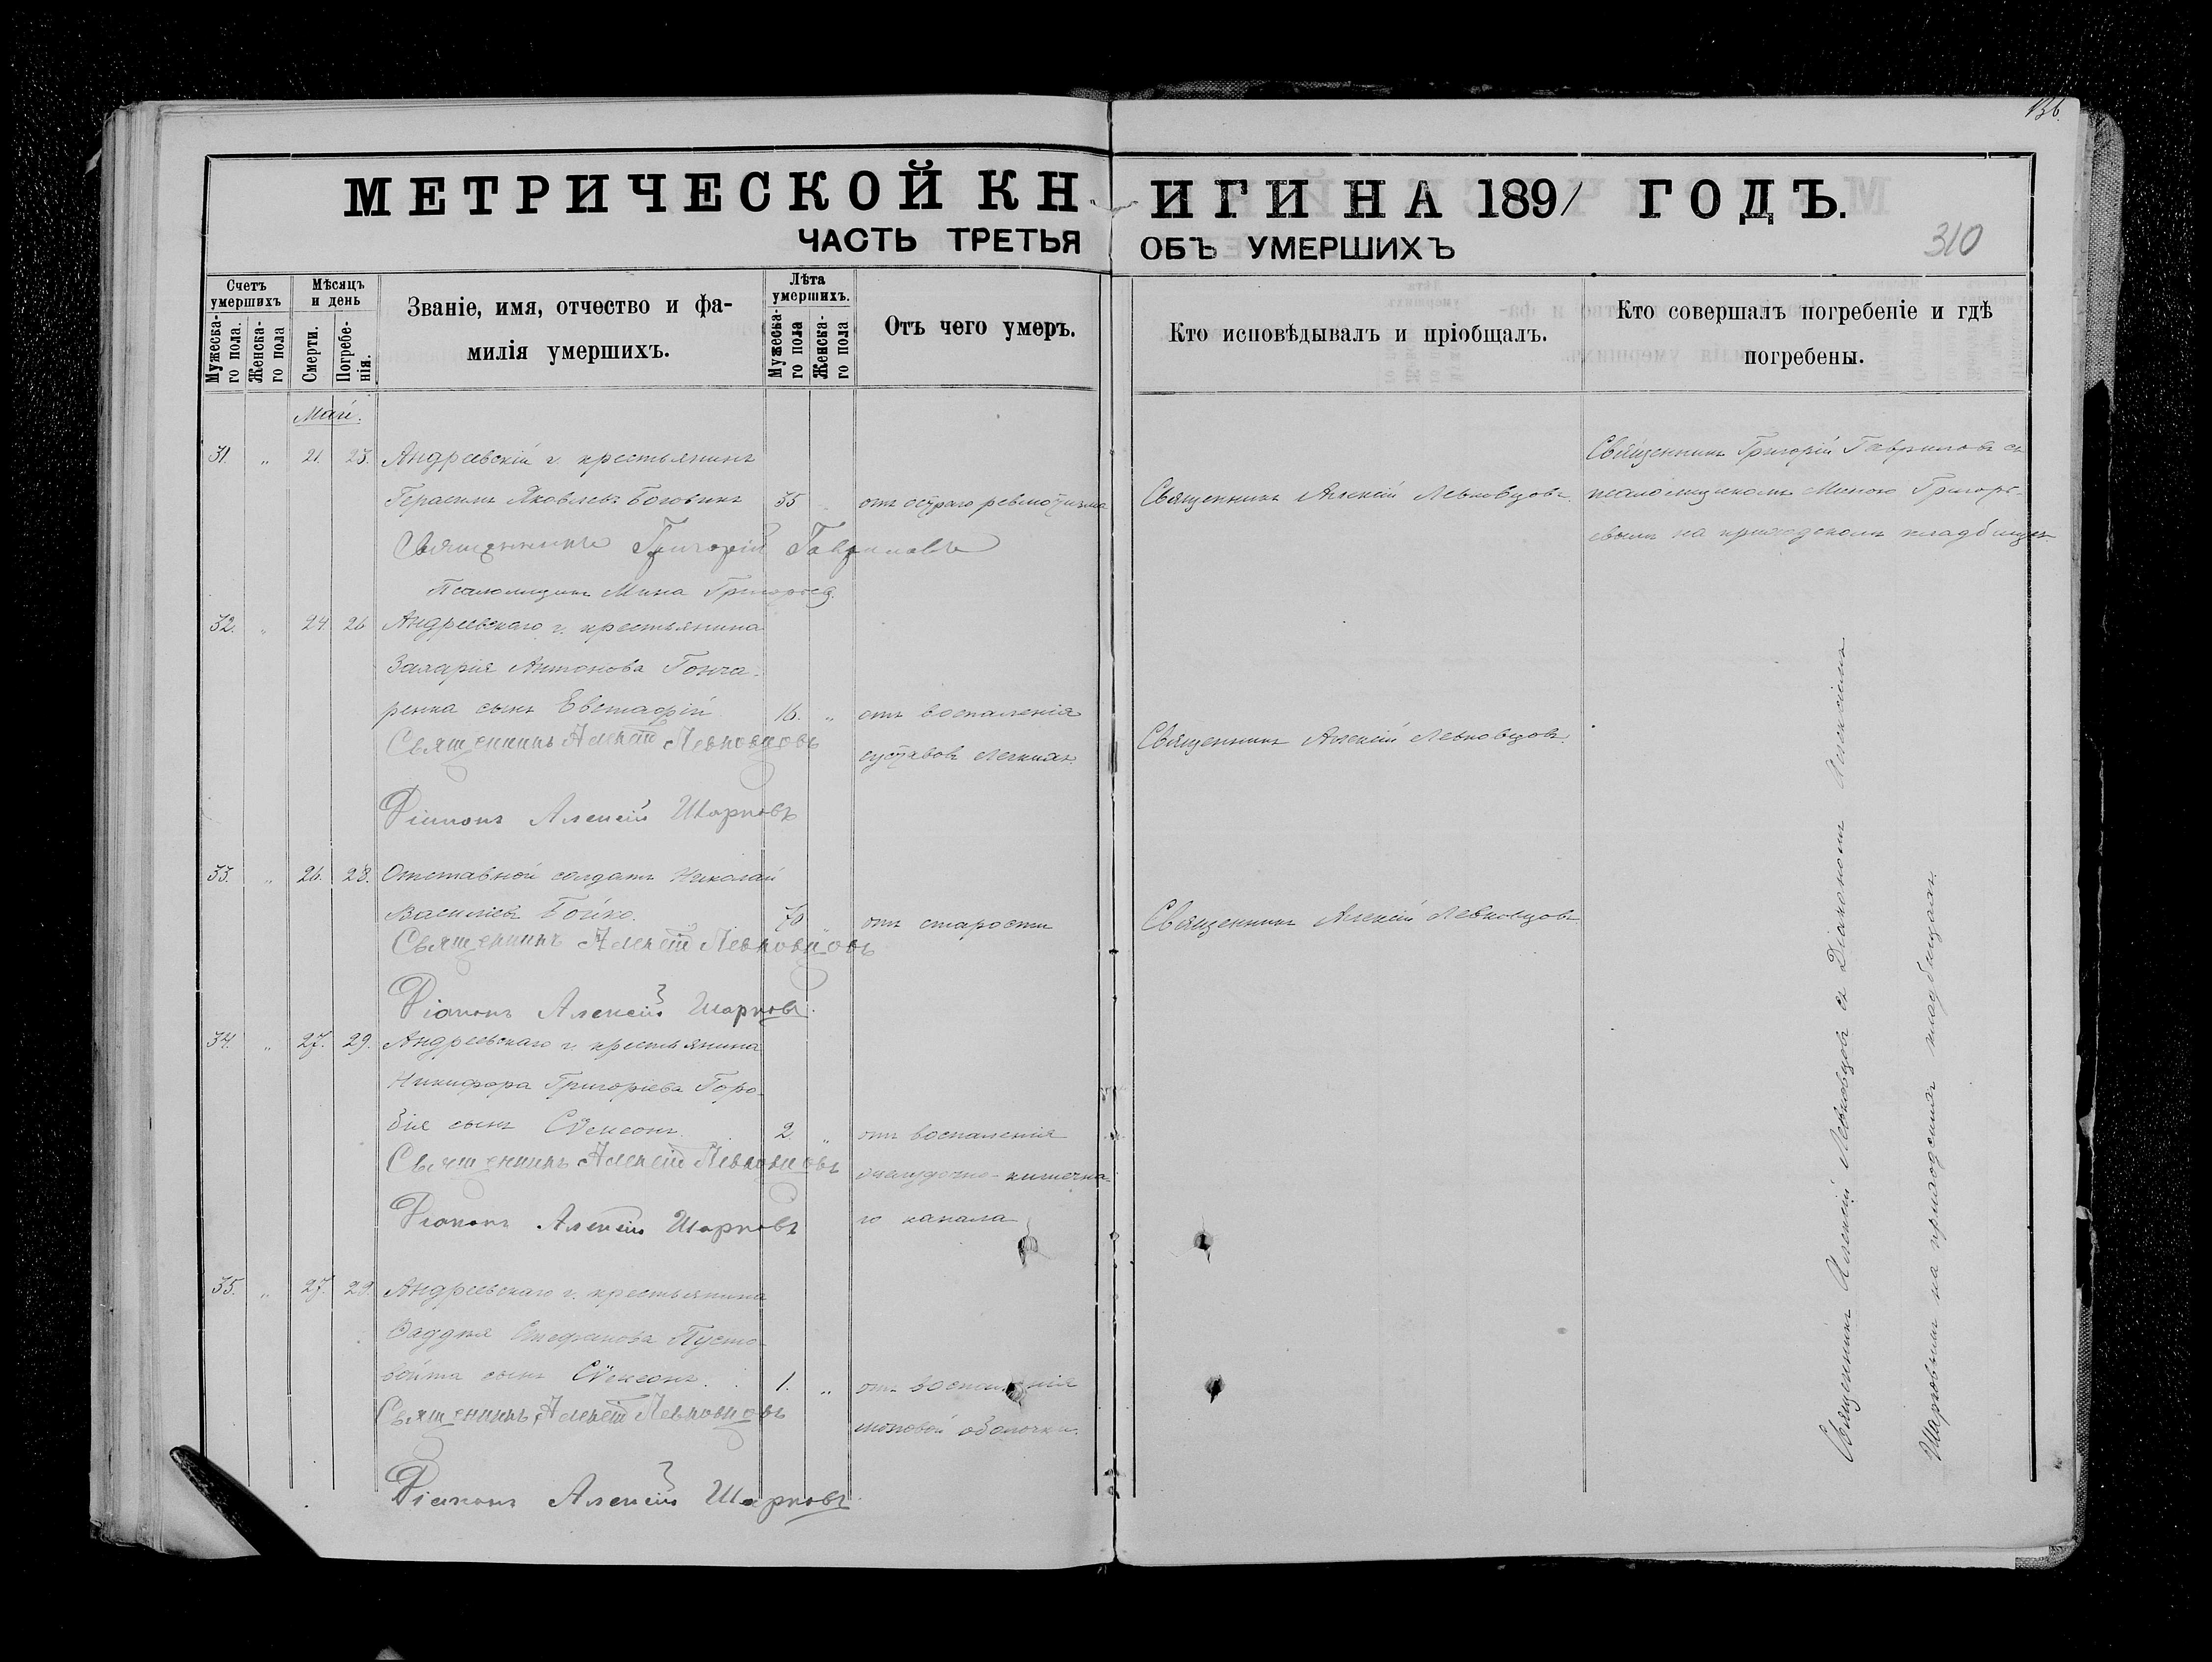 136.
МЕТРИЧЕСКОЙ КНИГИ НА 1891 ГОДЪ.
ЧАСТЬ ТРЕТЬЯ ОБЪ УМЕРШИХЪ
310
Счетъ умершихъ
Мужеска-го пола.
Женска-го пола
Мѣсяцъ и день
Смерти.
Погребе-нія.
Званіе, имя, отчество и фа-
милія умершихъ.
Лѣта умершихъ.
Мужеска-го пола
Женска-го пола
Отъ чего умеръ.
Кто исповѣдывалъ и пріобщалъ.
Кто совершалъ погребеніе и гдѣ
погребены.
Май.
31. „ 21. 23. Андреевскій г. крестьянинъ
Герасимъ Яковлевъ 35 отъ остраго ревматизма
Священникъ Алексій Левковцовъ.
Священникъ Григорій Гавриловъ съ
псаломщикомъ Миною Григорь-
евымъ на приходскомъ кладбищѣ.
Священникъ Григорій Гавриловъ
Псаломщикъ Мина Григорьев
32. „ 24 26 Андреевскаго г. крестьянина
Захарія Антонова Гонча-
ренка сынъ Евстафій 16. „ отъ воспаленія
суставовъ
Священникъ Алексій Левковцовъ
Священникъ Алексій Левковцовъ.
Діаконъ Алексій Шарковъ
33. „ 26. 28. Отставной солдатъ Николай
Василіевъ Бойко. 70 „ отъ старости
Священникъ Алексій Левковцовъ
Священникъ Алексій Левковцовъ
Діаконъ Алексій Шарковъ.
34. „ 27. 29. Андреевскаго г. крестьянина
Никифора Григоріева Горо-
бія сынъ Сѵмеонъ. 2 „ отъ воспаленія
желудочно-кишечна-
го канала
Священникъ Алексій Левковцовъ
Діаконъ Алексій Шарковъ
35. „ 27. 29. Андреевскаго г. крестьянина
Ѳаддея Стефанова Пусто-
войта сынъ Сѵмеонъ. 1. „ отъ воспаленія
мозговой оболочки.
Священникъ Алексій Левковцовъ
Діаконъ Алексій Шарковъ.
Священникъ Алексій Левковцовъ съ Діакономъ Алексіемъ
Шарковымъ на приходскихъ кладбищахъ.